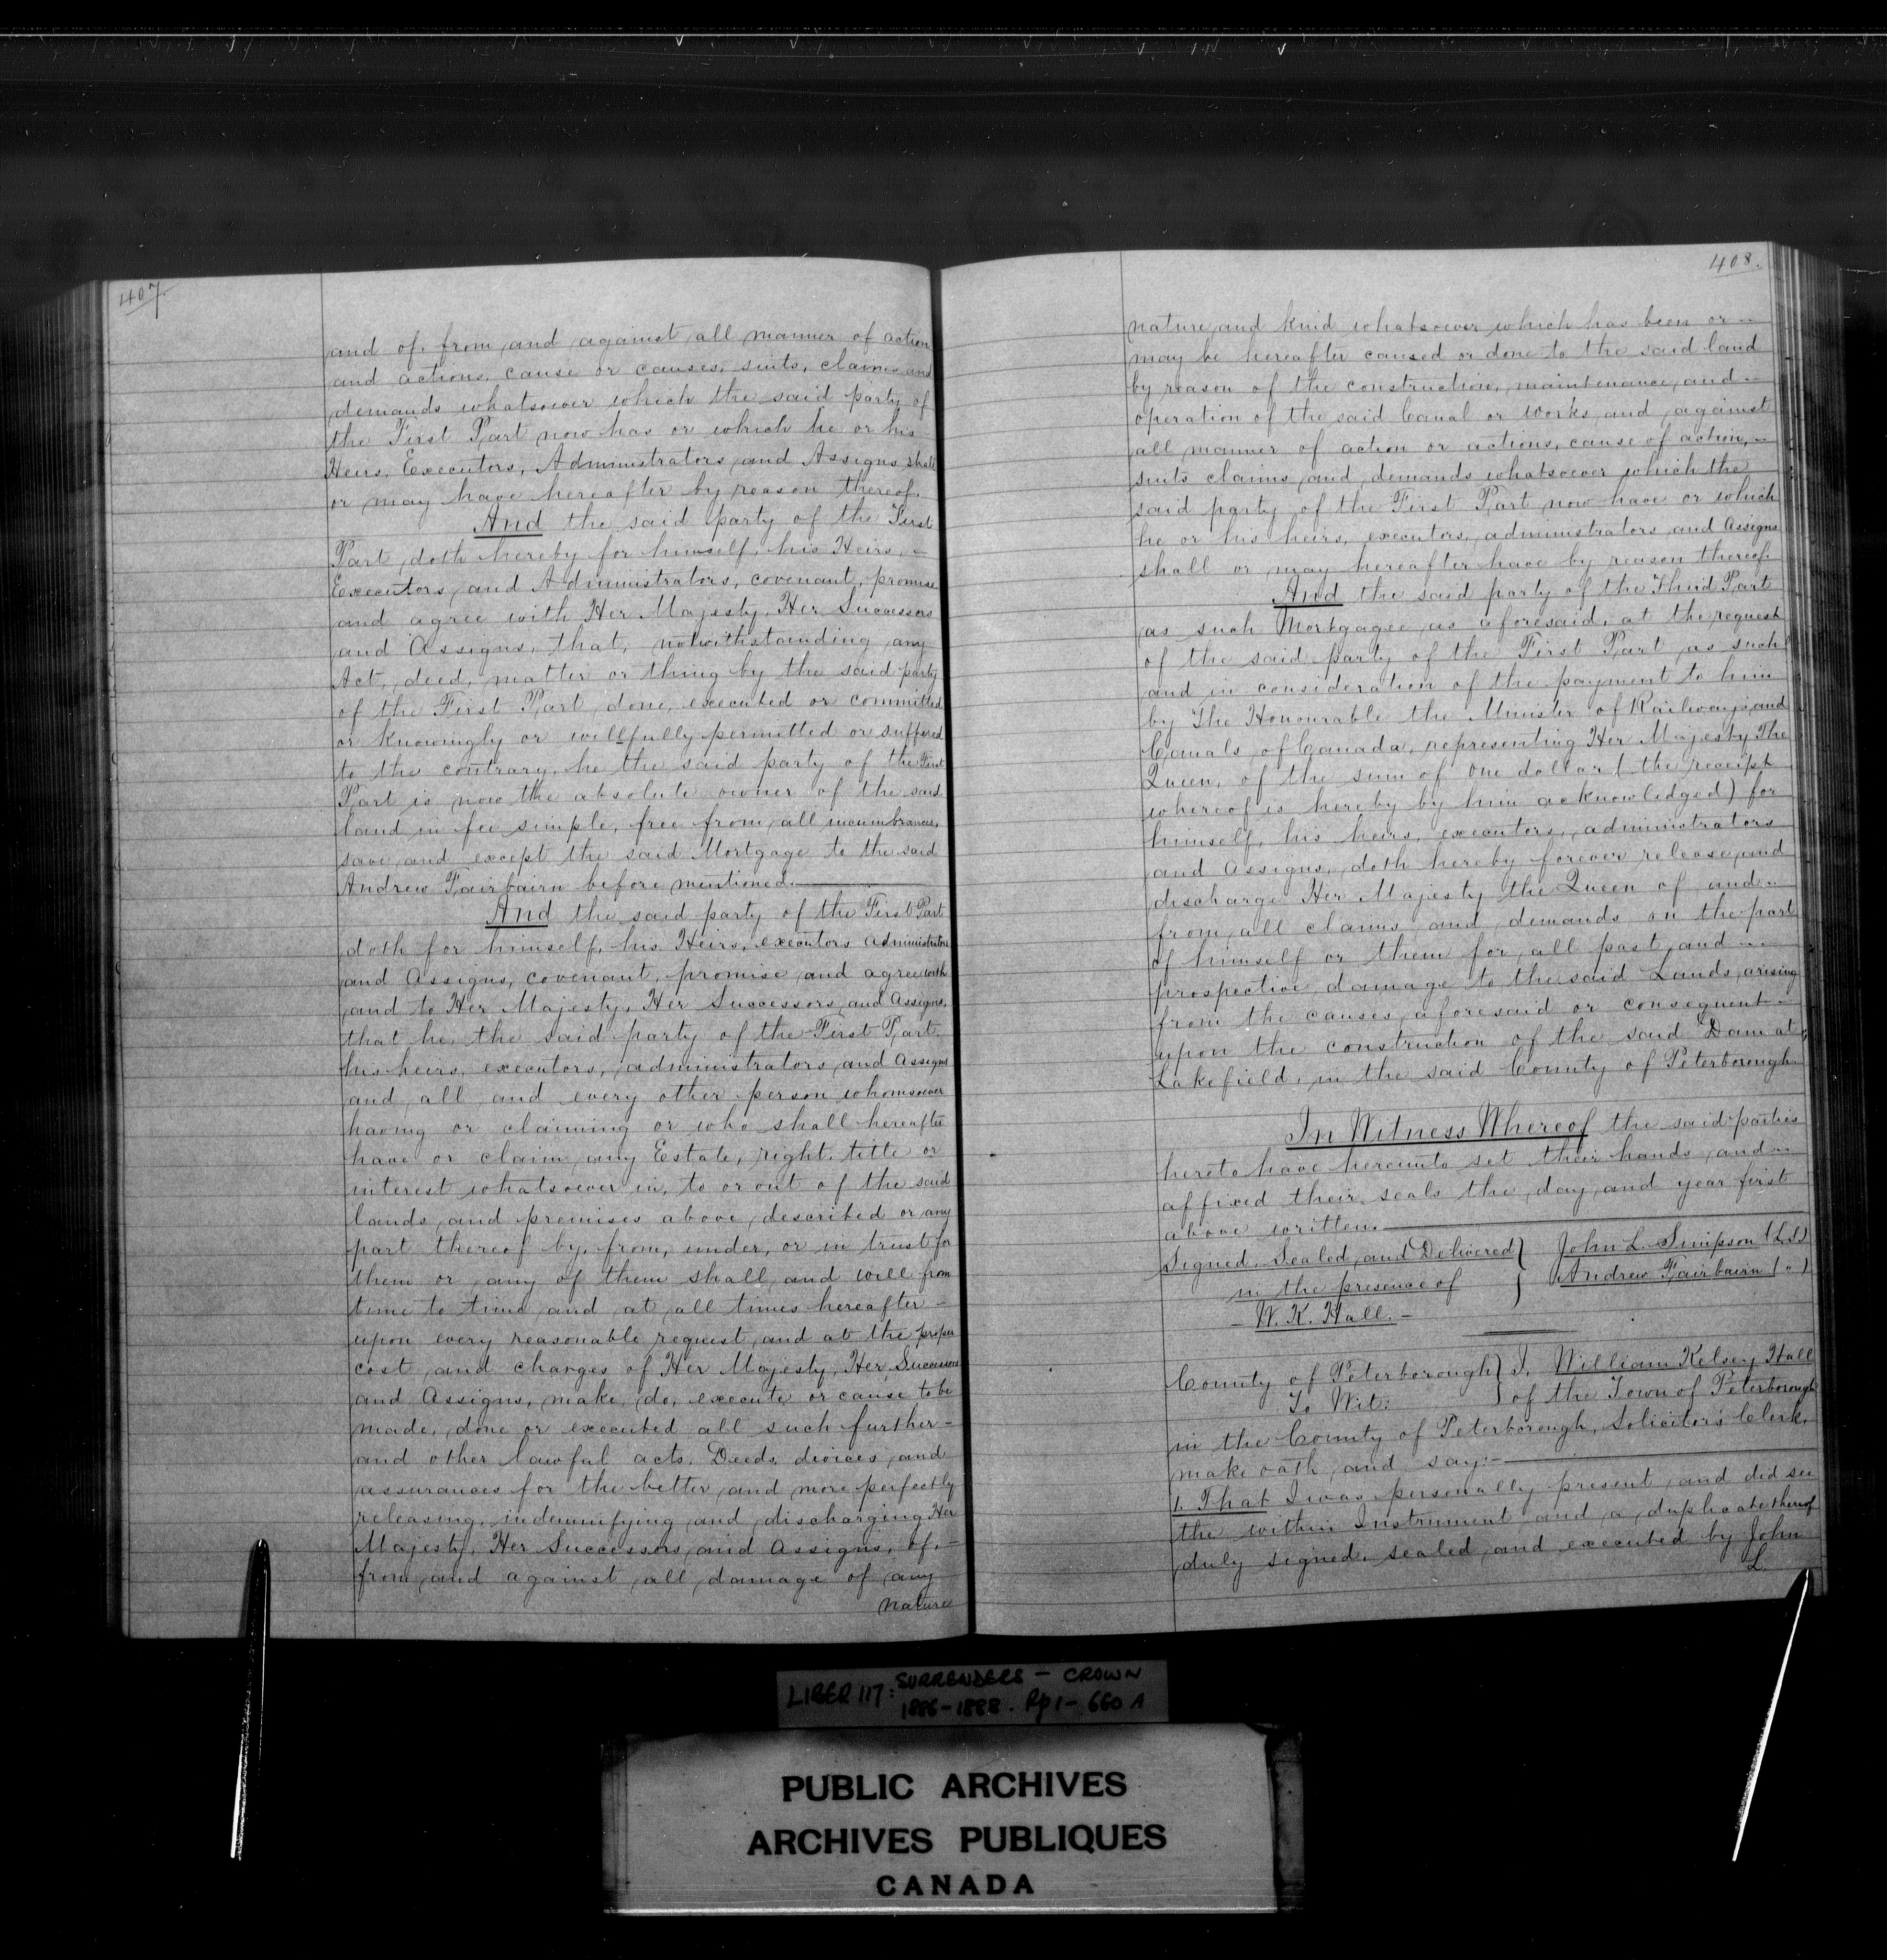 407.
and of, from and against all manner of action
and actions, cause or causes, suits, claims and
demands whatsoever which the said party of
the First Part now has or which he or his
Heirs, Executors, Administrators and Assigns shall
or may have hereafter by reason thereof.
And the said party of the First
Part doth hereby for himself, his Heirs, -
Executors, and Administrators, covenant, promise
and agree with Her Majesty, Her Successors
and Assigns, that, notwithstanding any
Act, deed, matter or thing by the said party
of the First Part done, executed or committed
or knowingly or willfully permitted or suffered
to the contrary, he the said party of the First
Part is now the absolute owner of the said
land in fee simple, free from all incumbrances,
save and except the said Mortgage to the said
Andrew Fairbairn before mentioned.
And the said party of the First Part
doth for himself, his Heirs, executors administrators
and Assigns, covenant, promise and agree with
and to Her Majesty, Her Successors and Assigns,
that he, the said party of the First Part.
his heirs, executors, administrators, and Assigns
and all and every other person whomsoever
having or claiming or who shall hereafter
have or claim any Estate, right, title or
interest whatsoever in, to or out of the said
lands and premises above described or any
part thereof by, from, under, or in trust for
them or any of them shall and will from
time to time and at all times hereafter -
upon every reasonable request and at the proper
cost and charges of Her Majesty, Her Successors
and Assigns, make, do, execute or cause to be
made, done or executed all such further -
and other lawful acts, Deeds, devices, and
assurances for the better and more perfectly
releasing, indemnifying and discharging Her
Majesty, Her Successors and Assigns, of, -
from and against all damage of any
nature
408.
nature and kind whatsoever which has been or -
may be hereafter caused or done to the said land
by reason of the construction, maintenance, and -
operation of the said Canal or Works and against
all manner of action or actions, cause of action, -
suits claims and demands whatsoever which the
said party of the First Part now have or which
he or his heirs, executors, administrators and Assigns
shall or may hereafter have by reason thereof.
And the said party of the Third Part
as such Mortgagee as aforesaid, at the request
of the said party of the First Part as such
and in consideration of the payment to him
by The Honourable the Minister of Railways and
Canals of Canada, representing Her Majesty The
Queen, of the sum of one dollar (the receipt
whereof is hereby by him acknowledged) for
himself, his heirs, executors, administrators
and Assigns, doth hereby forever release and
discharge Her Majesty the Queen of and -
from all claims and demands on the part
of himself or them for all past and -
prospective damage to the said Lands arising
from the causes aforesaid or consequent -
upon the construction of the said Dam at
Lakefield, in the said County of Peterborough
In Witness Whereof the said parties
hereto have hereunto set their hands and -
affixed their seals the day and year first
above written.
Signed, Sealed, and Delivered } John L. Simpson (L.S)
in the presence of } Andrew Fairbairn ( " )
- W. K. Hall. -
County of Peterborough } I, William Kelsey Hall
To Wit: } of the Town of Peterborough
in the County of Peterborough, Solicitor's Clerk,
make oath and say: -
1. That I was personally present and did see
the within Instrument and a duplicate thereof
duly signed, sealed and executed by John
L.
LIBER 117: SURRENDERS - CROWN
1886-1888. Pp 1-660 A
PUBLIC ARCHIVES
ARCHIVES PUBLIQUES
CANADA